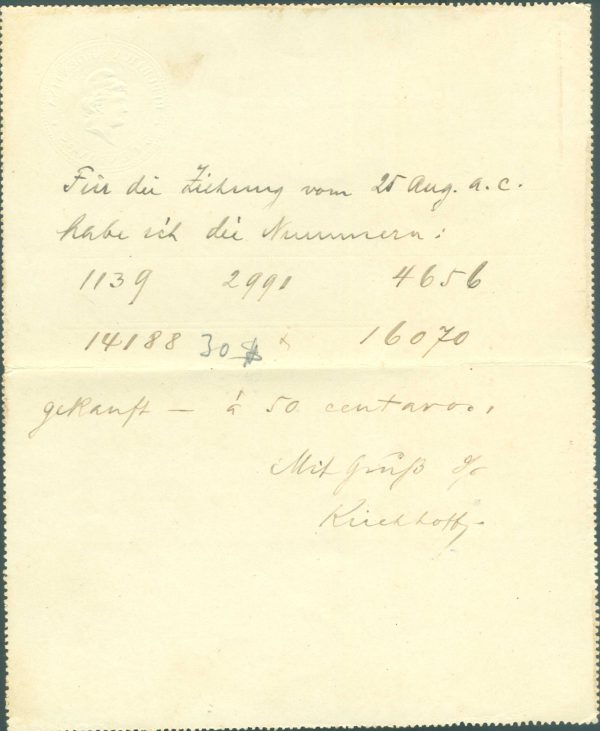 Für die Ziehung vom 25 Aug. a. c.
habe ich die Nummern:
1139 2991 4656
14188 30 $ x 16070
gekauft — á 50 centavos.
Mit Gruß
Kirchhoff.